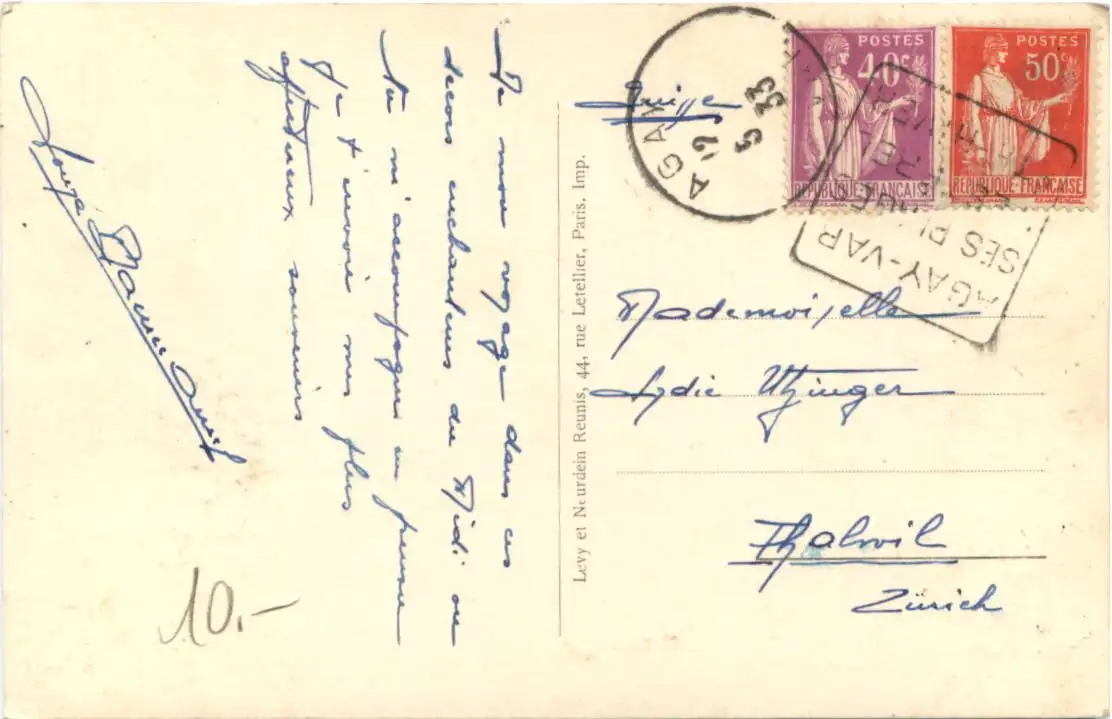 De mon voyage dans ces
decors enchanteurs du Midi ou
tu m'accompagnes en pensée
Je t'envoie mes plus
affectueux souvenirs
10.-
Levy et Neurdein Reunis, 44, rue Letellier, Paris, Imp.
Suisse
AGAY
12
5 33
VAR
POSTES
40c
REPUBLIQUE-FRANCAISE
POSTES
50c
REPUBLIQUE-FRANCAISE
AGAY-VAR
SES
Mademoiselle
Lydie Utzinger
Thalwil
Zürich